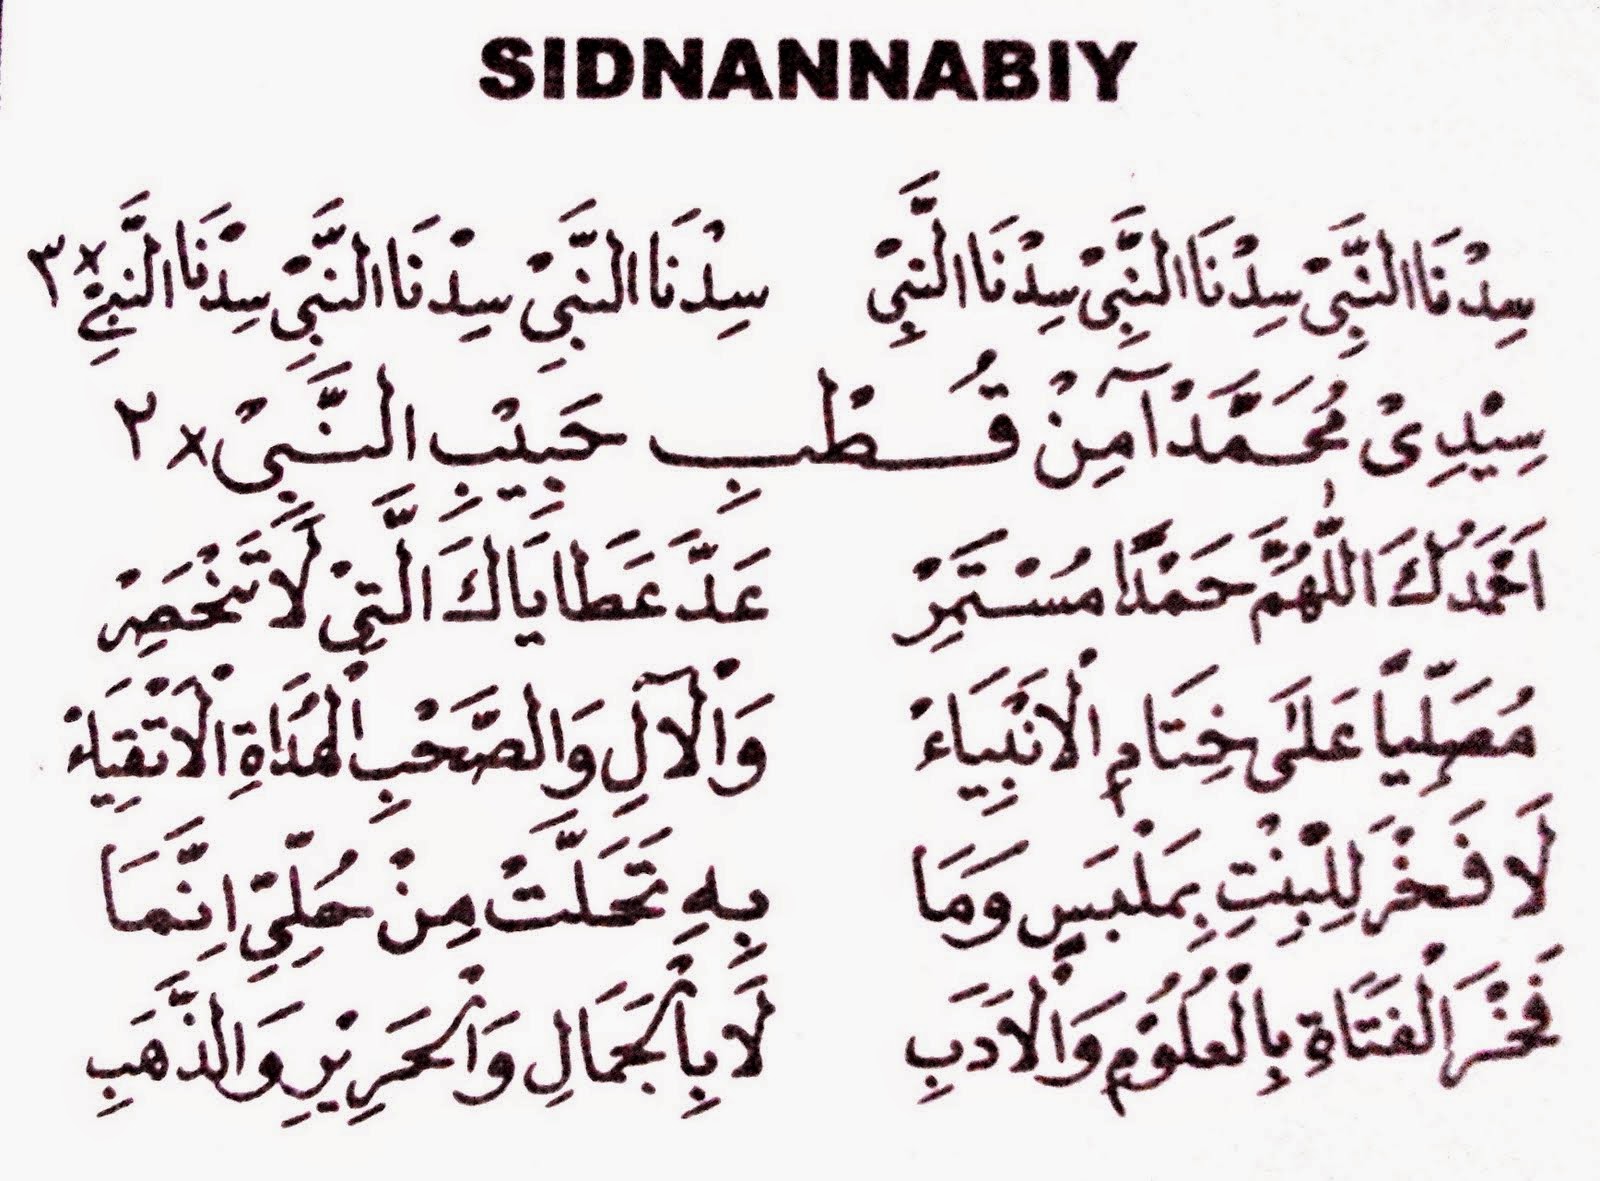 SIDNANNABIY
سِدْنَا النَّبِيْ سِدْنَا النَّبِيْ سِدْنَا النَّبِيْ سِدْنَا النَّبِيْ سِدْنَا النَّبِيْ سِدْنَا النَّبِيْ ×٣
سِيْدِىْ مُحَمَّدْ آمِنْ قُطْبِ حَبِيْبِ النَّبِىْ ×٢
اَحْمَدُكَ اللّٰهُمَّ حَمْدًا مُسْتَمِرْ عَدَّ عَطَايَاكَ الَّتِىْ لَا تَنْحَصِرْ
مُصَلِّيًا عَلَى خِتَامِ الْاَنْبِيَاءْ وَالْآلِ وَالصَّحْبِ الْهُدَاةِ الْاَتْقِيَاءْ
لَا فَخْرَ لِلْبِنْتِ بِمَلْبَسٍ وَمَا بِهِ تَحَلَّتْ مِنْ حُلِيٍّ اِنَّمَا
فَخْرُ الْفَتَاةِ بِالْعُلُوْمِ وَالْاَدَبِ لَا بِالْجَمَالِ وَالْحَرِيْرِ وَالذَّهَبِ